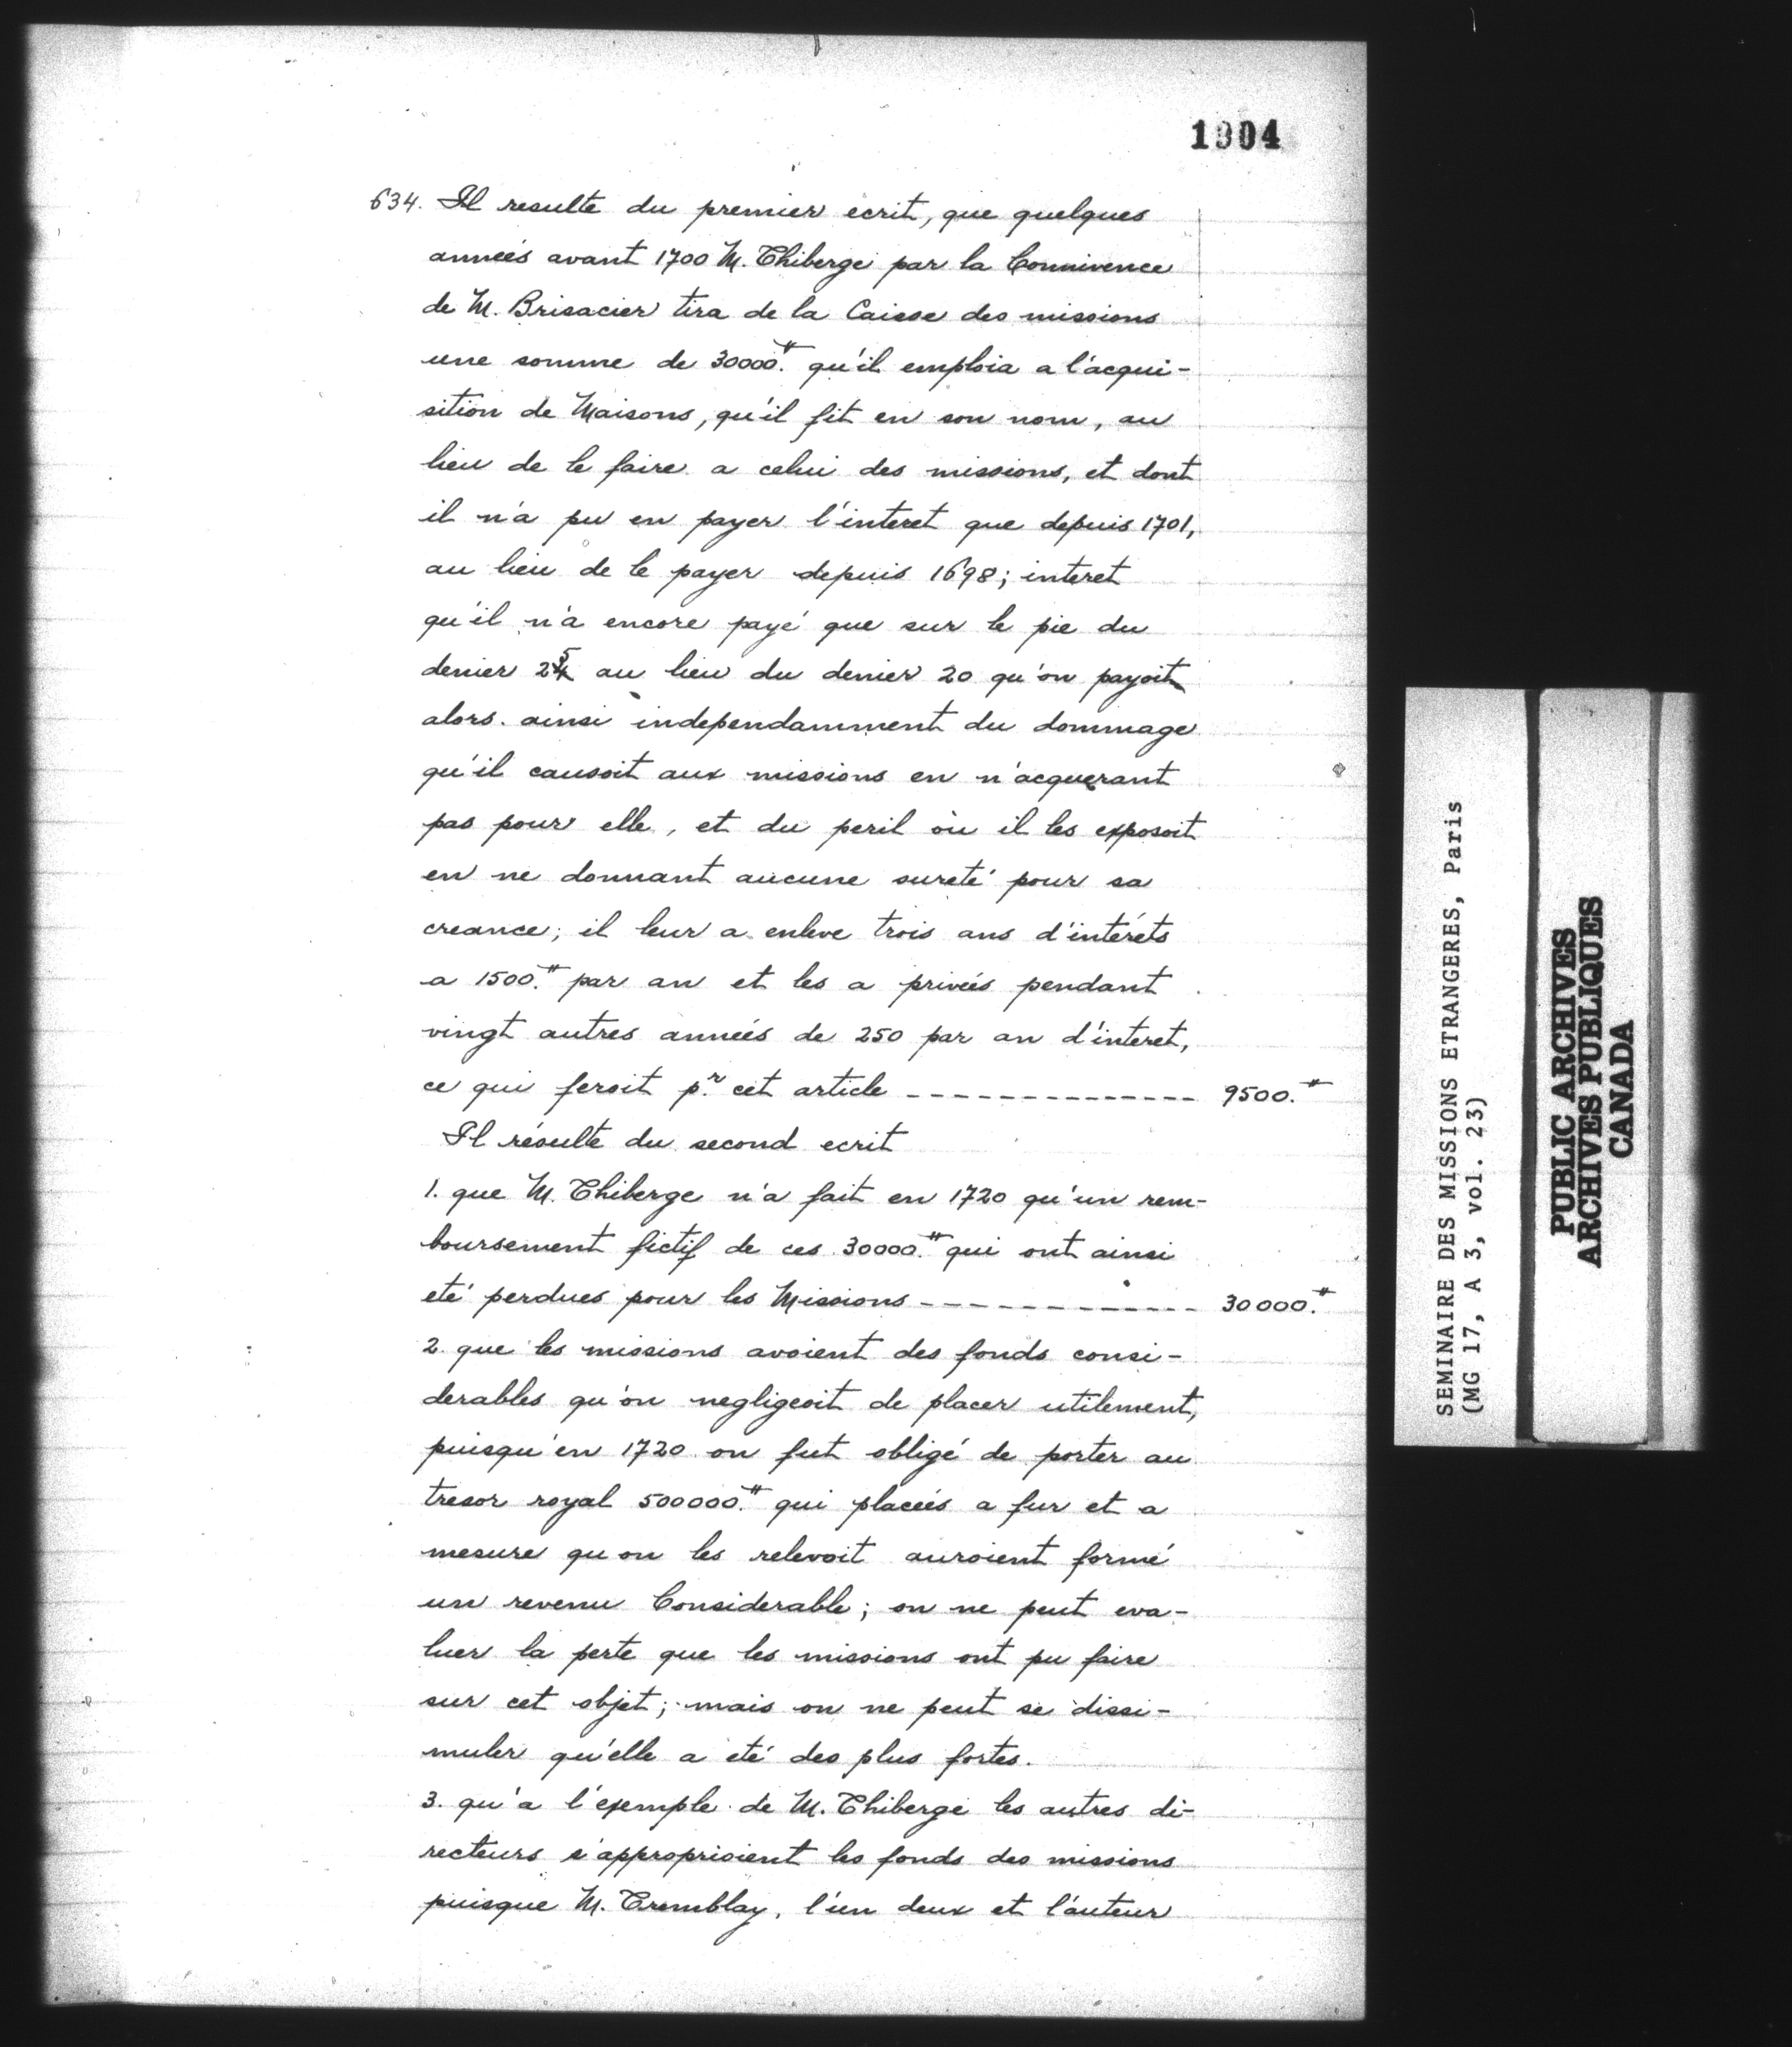 1904
634. Il resulte du premier ecrit, que quelques
annéés avant 1700 M. Thiberge par la Connivence
de M. Brisacier tira de la Caisse des missions
une somme de 30000.# qu'il emploia a l'acqui-
sition de Maisons, qu'il fit en son nom, au
lieu de le faire a celui des missions, et dont
il n'a pu en payer l'interet que depuis 1701,
au lieu de le payer depuis 1698; interet
qu'il n'a encore payé que sur le pie du
denier 25 au lieu du denier 20 qu'on payoit
alors. ainsi independamment du dommage
qu'il causoit aux missions en n'acquerant
pas pour elle, et du peril où il les exposoit
en ne donnant aucune sureté pour sa
creance; il leur a enleve trois ans d'intérêts
a 1500.# par an et les a privéés pendant
vingt autres annéés de 250 par an d'interet,
ce qui feroit pr. cet article -------------- 9500.#
Il résulte du second ecrit
1. que M. Thiberge n'a fait en 1720 qu'un rem-
boursement fictif de ces 30000.# qui ont ainsi
eté perdues pour les Missions ------------- 30000.#
2. que les missions avoient des fonds consi-
derables qu'on negligeoit de placer utilement,
puisqu'en 1720 on fut obligé de porter au
tresor royal 500000.# qui placéés a fur et a
mesure qu'on les relevoit auroient formé
un revenu Considerable; on ne peut eva-
luer la perte que les missions ont pu faire
sur cet objet; mais on ne peut se dissi-
muler qu'elle a eté des plus fortes.
3. qu'a l'exemple de M. Thiberge les autres di-
recteurs s'approprioient les fonds des missions
puisque M. Tremblay, l'un deux et l'auteur
SEMINAIRE DES MISSIONS ETRANGERES, Paris
(MG 17, A 3, vol. 23)
PUBLIC ARCHIVES
ARCHIVES PUBLIQUES
CANADA